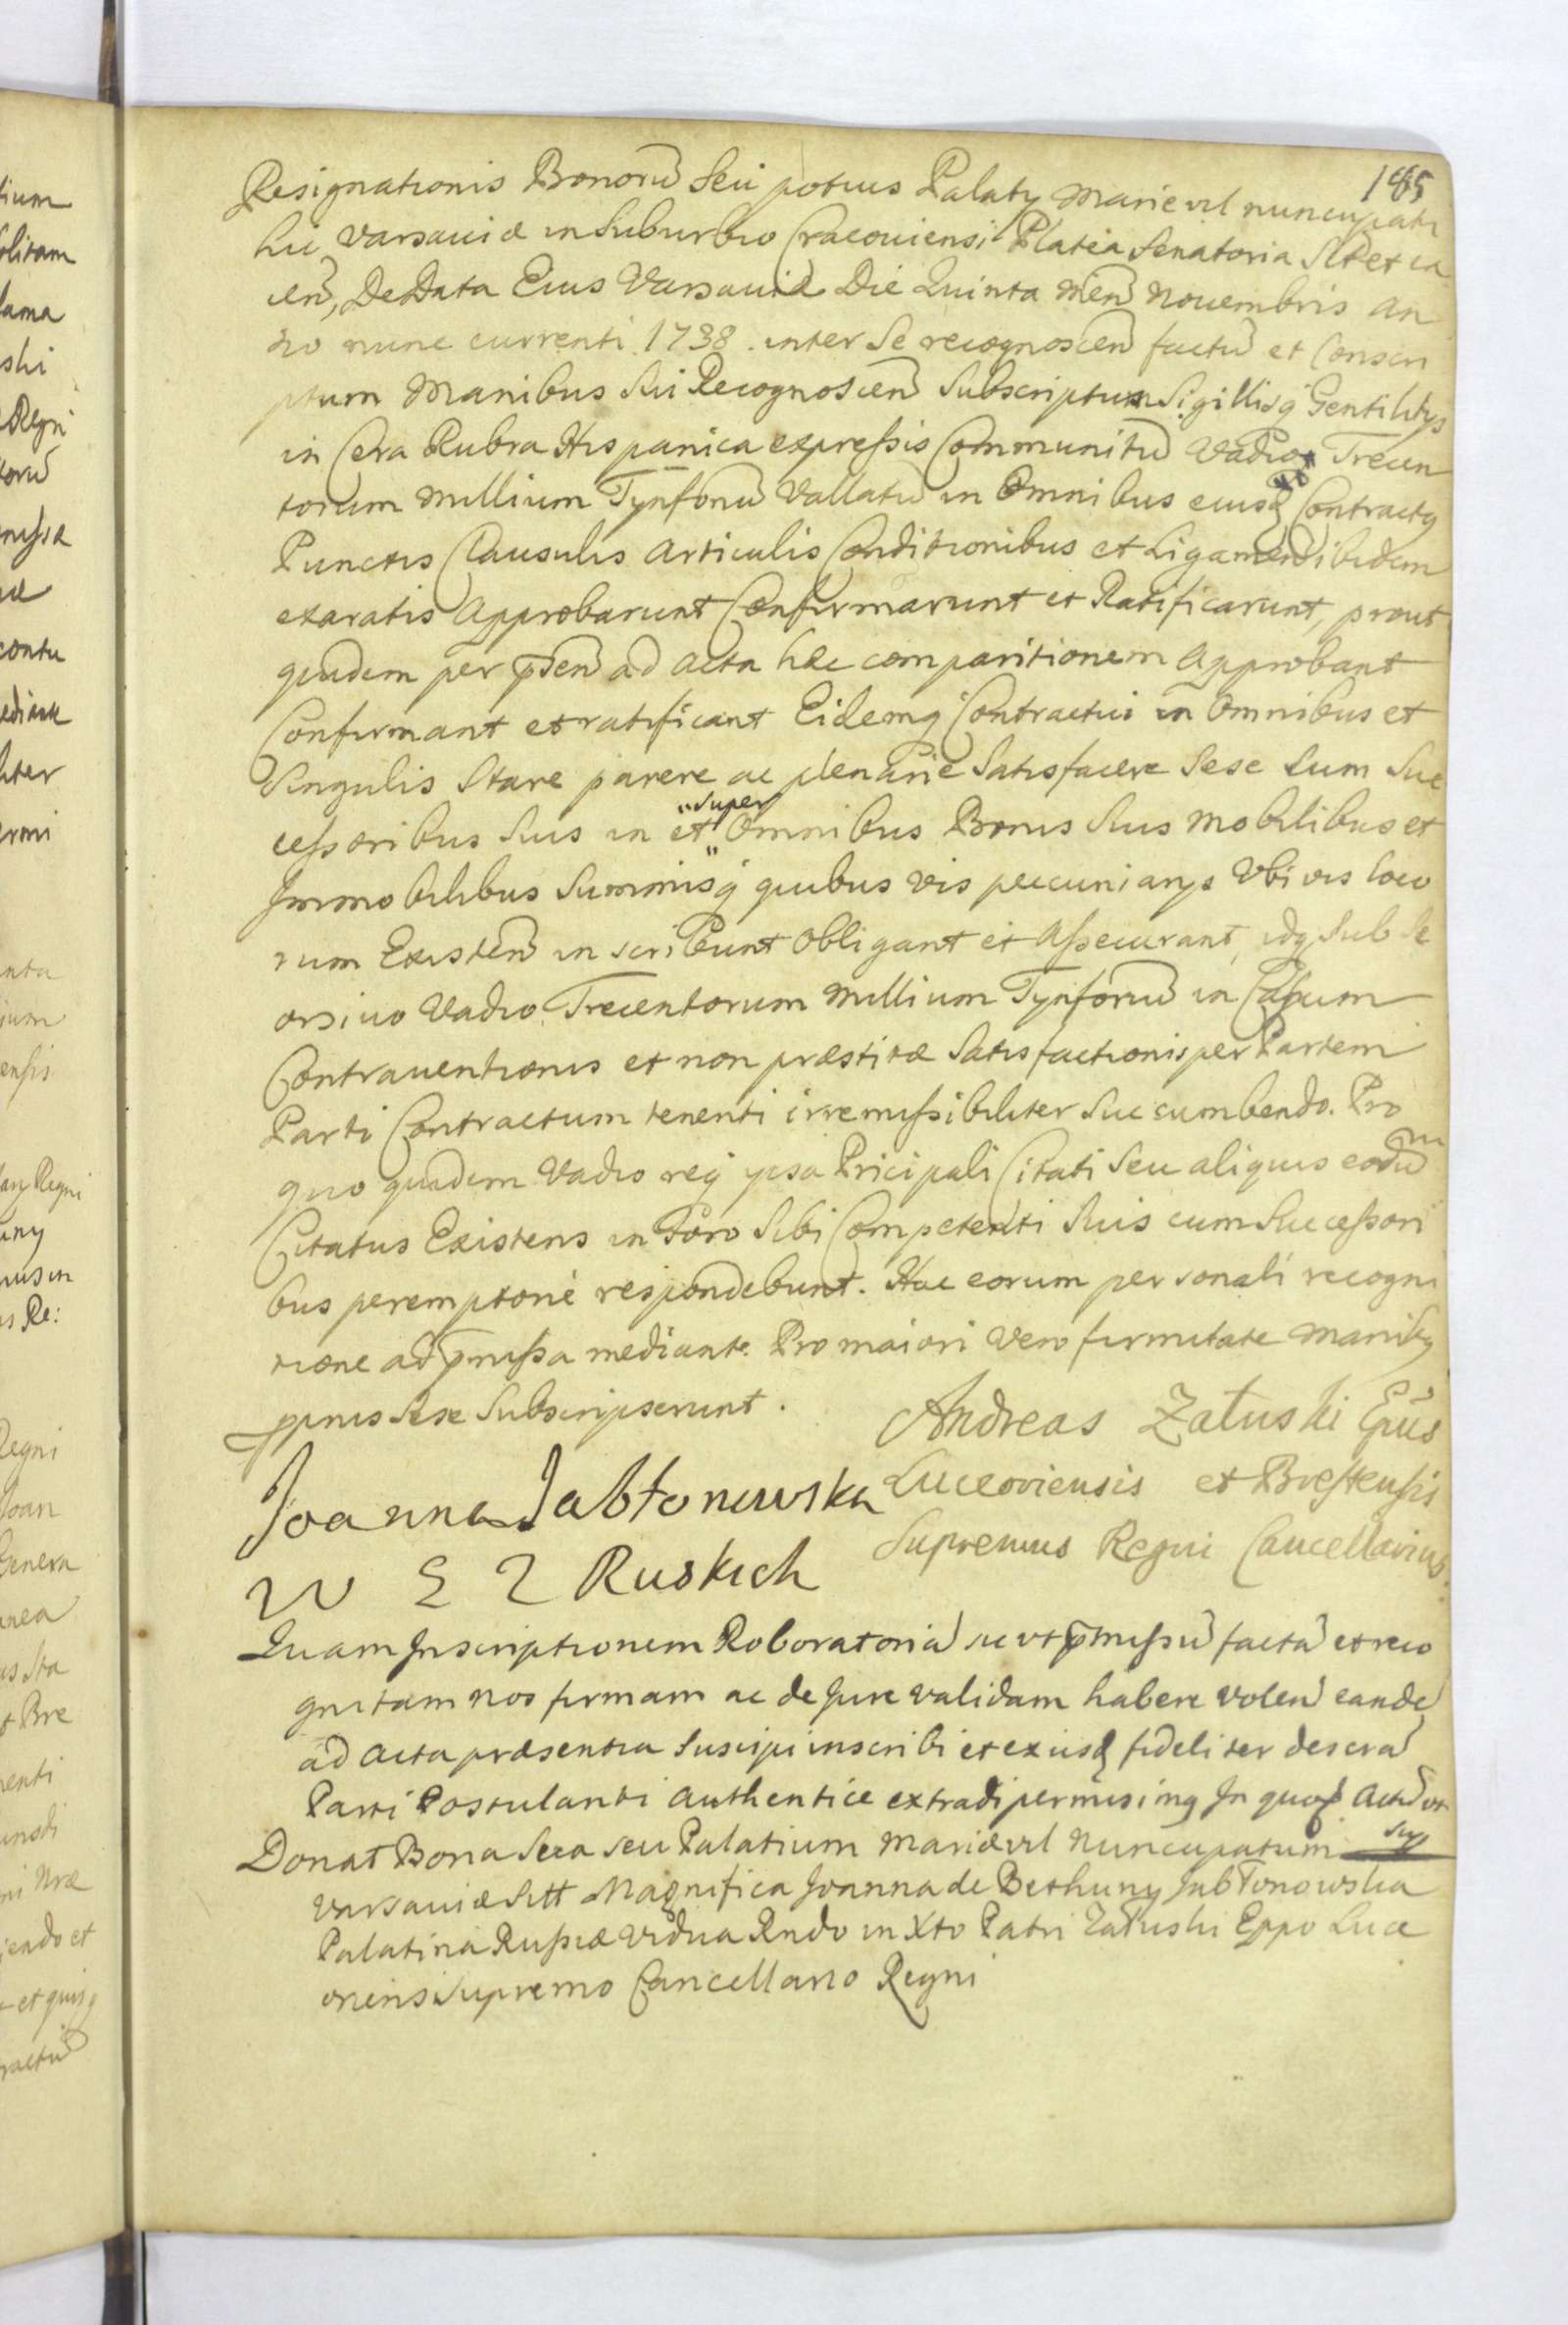 185
Resignationis Bonorũ seu potius Palaty Marievil nuncupati
hic Varsauiæ in Suburbio Cracouiensi Platea Senatoria Sit et ia
cen̄, De Data Eius Varsauiæ Die Quinta men̄ Nouembris An
no nunc currenti 1738. inter Se recognoscen̄ factũ et Conscri
ptum Manibus Sui Recognoscen̄ Subscriptum Sigillisq́ Gentilitys
in Cera Rubra Hispanica expressis Communitũ Vadio Trecen
torum Millium Tynforũ Vallatũ in Omnibus eiusd Contracty
Punctis Clausulis Articulis Conditionibus et Ligamen̄ ibidem
exaratis Approbarunt Confirmarunt et Ratificarunt, prout
quidem per p̄sen̄ ad Acta hæc comparitionem Approbant
Confirmant et ratificant Eidemq́ Contractui in Omnibus et
Singulis Stare parere ac plenarie Satisfacere Sese Cum Suc
cessoribus Suis in et super Omnibus Bonis Suis Mobilibus et
Immobilibus Summisq́ quibus vis pecuniarys Vbi vis loco
rum Existen̄ inscribunt Obligant et Assecurant, idq́ Sub Se
orsiuo Vadio Trecentorum Millium Tynforũ in Casum
Contrauentionis et non præstitæ Satisfactionis per Partem
Parti Contractum tenenti irremissibiliter Succumbendo. Pro
quo quidem Vadio req́ ipsa Pricipali Citati Seu aliquis eodũ
Citatus Existens in Foro Sibi Competenti Suis cum Successori
bus peremptorie respondebunt. Hac eorum personali recogni
tione ad p̄missa mediante. Pro maiori Vero firmitate Maniby
pprijs Sese Subscripserunt.
Andreas Załuski Ep̄us
Luceoriensis et Brestensis
Supremus Regni Cancellarius.
Joanna Jabłonowska
W Z Z Ruskich
Quam Inscriptionem Roboratoriã sic vt p̄missũ factã et reco
gnitam nos firmam ac de Jure validam habere volen̄ eandẽ
ad Acta præsentia Suscipi inscribi et ex iisd fideliter descrã
Parti Postulanti Authentice extradi permisimq In quoȝ Actũ vt Sup
Donat Bona Sua seu Palatium Mariævil Nuncupatum
Varsauiæ Sitt Magnifica Joanna de Bethuny Jabłonowska
Palatina Russiæ Vidua Rndo in Xto Patri Załuski Eppo Luce
oriensi Supremo Cancellario Regni